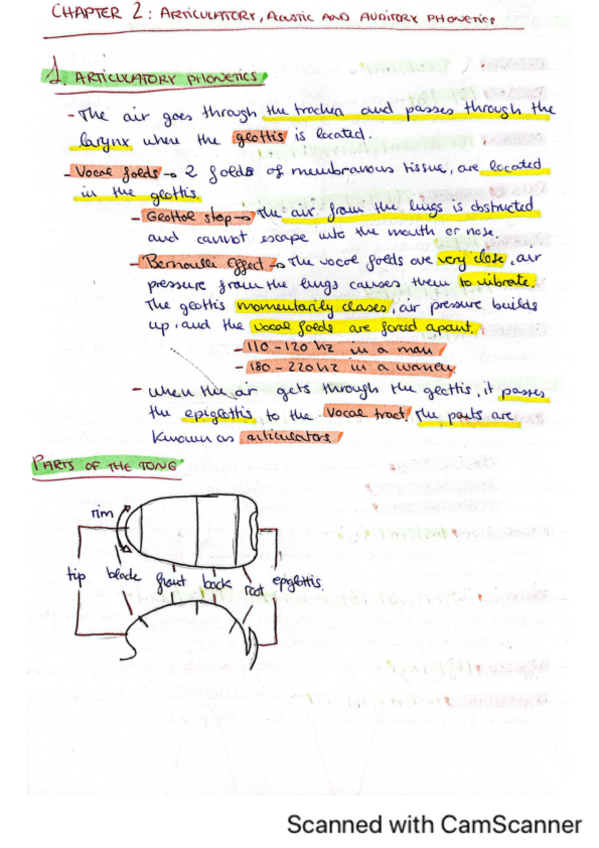 CHAPTER 2: ARTICULATORY, ACUSTIC AND AUDITORY PHONETICS
1. ARTICULATORY PHONETICS
- The air goes through the trachea and passes through the
larynx when the glottis is located.
- Vocal folds → 2 folds of membranous tissue, are located
in the glottis.
- Glottal stop → The air from the lungs is obstructed
and cannot escape into the mouth or nose.
- Bernoulli Effect → The vocal folds are very close, air
pressure from the lungs causes them to vibrate.
The glottis momentarily closes, air pressure builds
up, and the vocal folds are forced apart.
- 110 - 120 hz in a man
- 180 - 220 hz in a women
- when the air gets through the glottis, it passes
the epiglottis to the vocal tract. The parts are
known as articulators
PARTS OF THE TONG
rim
tip blade front back root epiglottis
Scanned with CamScanner